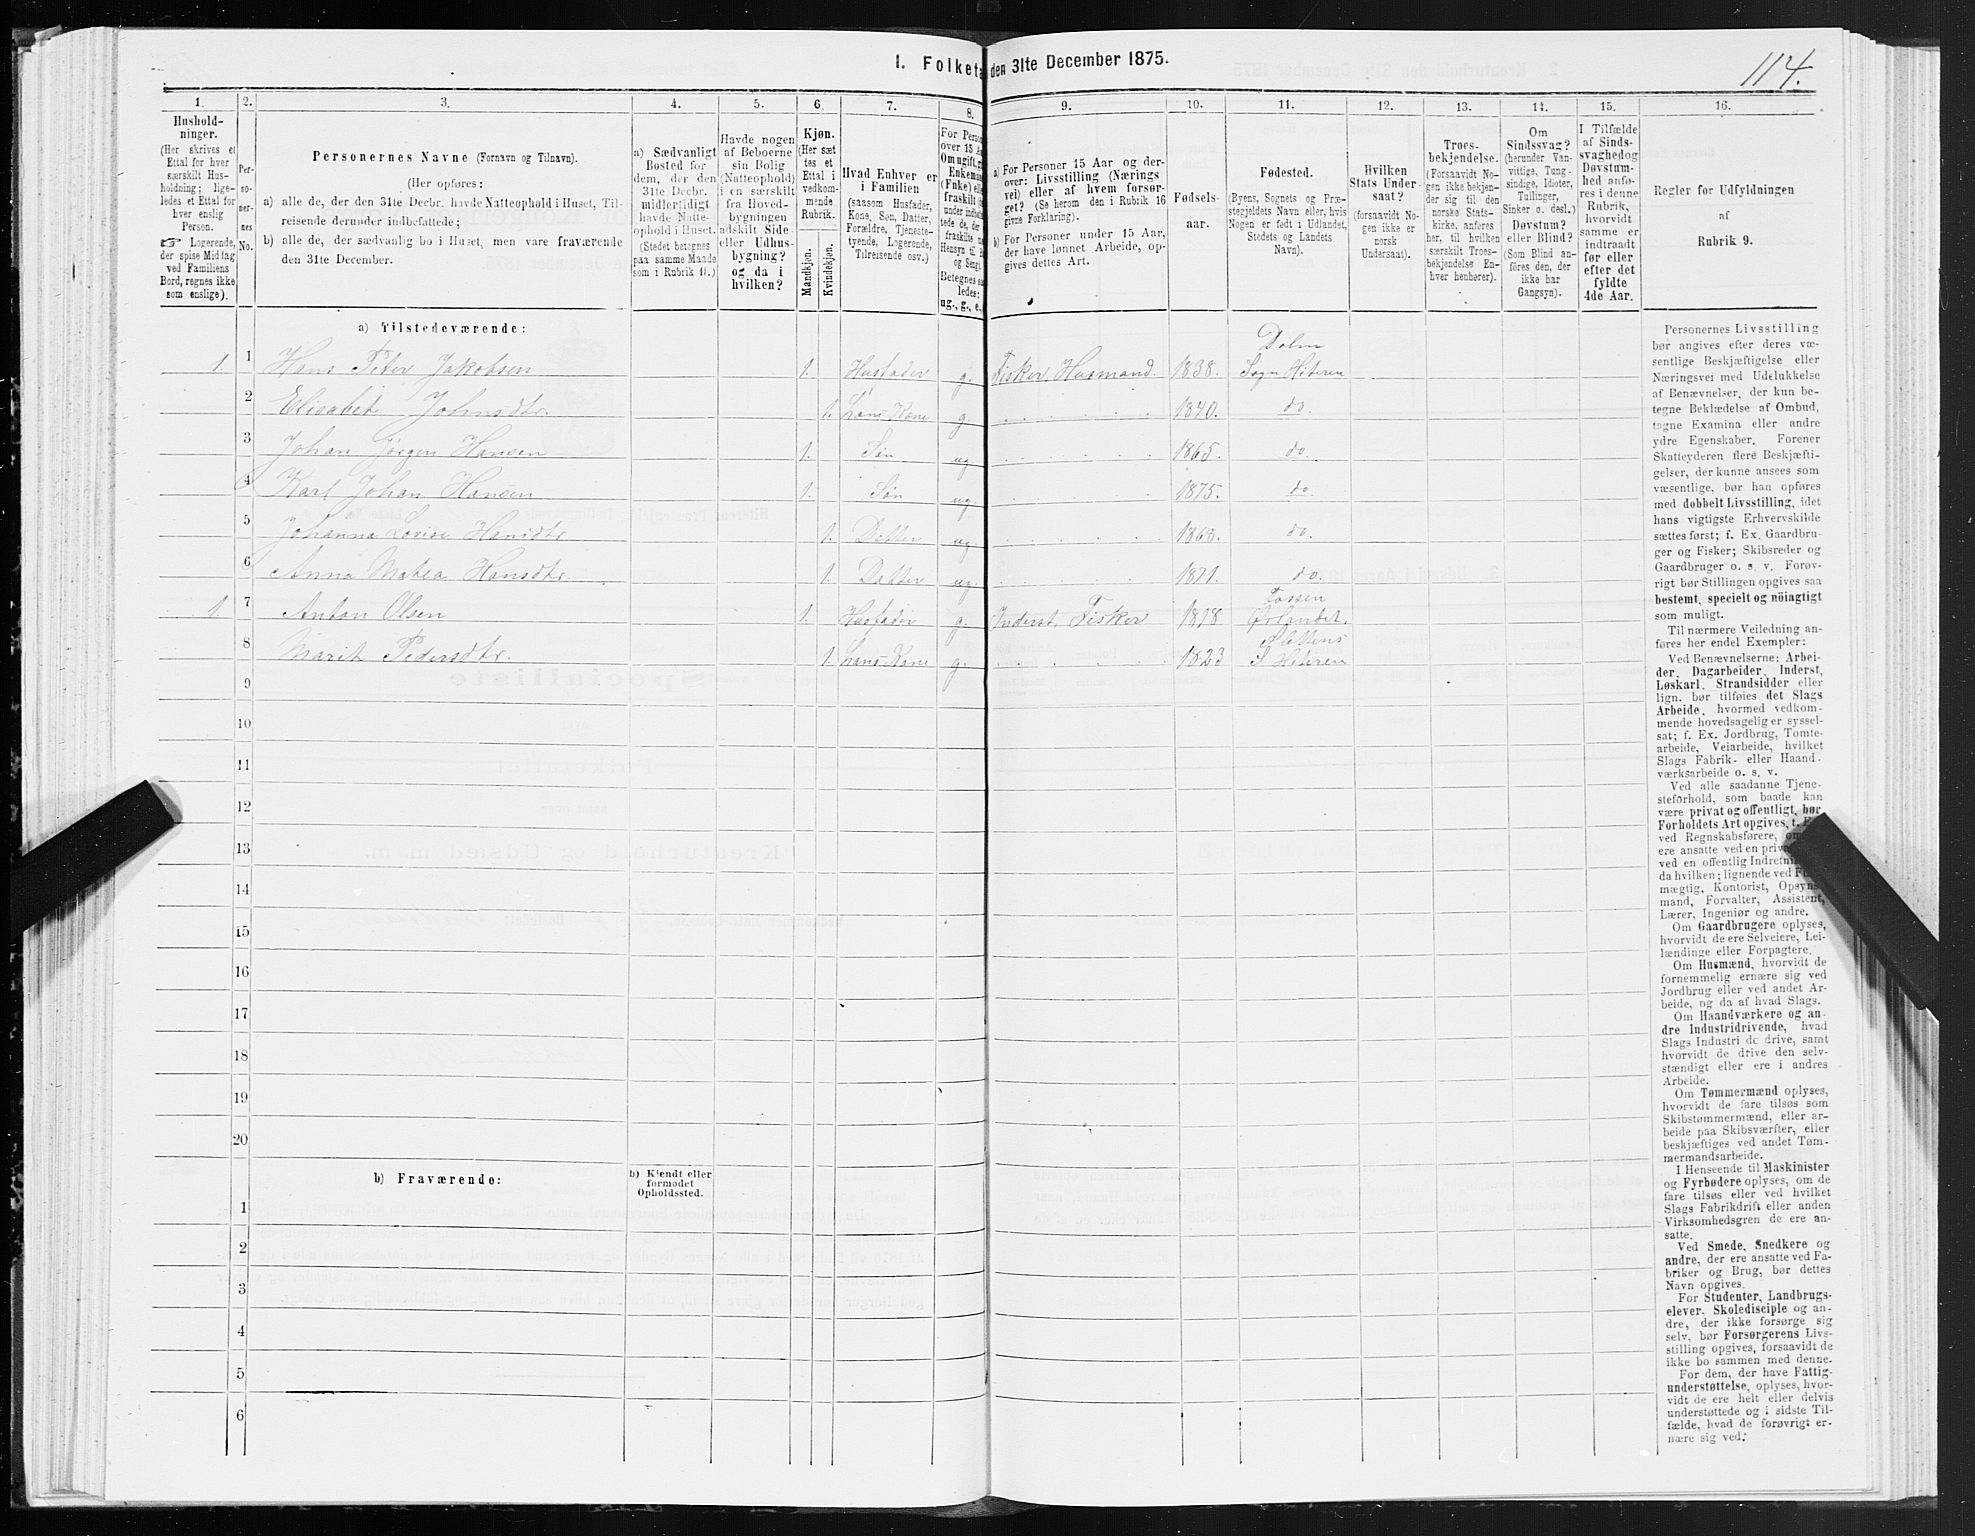 114.
I. Folketa den 31te December 1875.
1. 2. 3. 4. 5. 6. 7. 8. 9. 10. 11. 12. 13. 14. 15. 16.
Hushold-
ninger.
(Her skrives et
Ettal for hver
særskilt Hus-
holdning; lige-
ledes et Ettal for
hver enslig
Person.
☞ Logerende,
der spise Middag
ved Familiens
Bord, regnes ikke
som enslige).
Per-
so-
ner-
nes
No.
Personernes Navne (Fornavn og Tilnavn).
(Her opføres:
a) alle de, der den 31te Decbr. havde Natteophold i Huset, Til-
reisende derunder indbefattede;
b) alle de, der sædvanlig bo i Huset, men vare fraværende
den 31te December.
a) Sædvanligt
Bosted for
dem, der den
31te Decbr.
midlertidigt
havde Natte-
ophold i Huset.
(Stedet betegnes
paa samme Maade
som i Rubrik 11.)
Havde nogen
af Beboerne
sin Bolig
(Natteophold)
i en særskilt
fra Hoved-
bygningen
adskilt Side-
eller Udhus-
bygning?
og da i
hvilken?
Kjøn.
(Her sæt
tes et
Ettal i
vedkom-
mende
Rubrik.
Mandkjøn.
Kvindekjøn.
Hvad Enhver er
i Familien
(saasom Husfader,
Kone, Søn, Datter,
Forældre, Tjeneste-
tyende, Logerende,
Tilreisende osv.)
For Perso
over 15 Aa
Om ugift, g
Enkema
(Enke) el
fraskilt
under indbe
tede de, d
fraskilte
Hensyn til
og Seng).
Betegnes sa
ledes:
ug., g., e.,
a) For Personer 15 Aar og der-
over: Livsstilling (Nærings
vei) eller af hvem forsør-
get? (Se herom den i Rubrik 16
givne Forklaring).
b) For Personer under 15 Aar,
der have lønnet Arbeide, op-
gives dettes Art.
Fødsels-
aar.
Fødested.
(Byens, Sognets og Præ-
stegjeldets Navn eller, hvis
Nogen er født i Udlandet,
Stedets og Landets
Navn).
Hvilken
Stats Under-
saat?
(forsaavidt No-
gen ikke er
norsk
Undersaat).
Troes-
bekjendelse.
(Forsaavidt No-
gen ikke bekjen-
der sig til den
norske Stats-
kirke, anføres
her, til hvilken
særskilt Troes-
bekjendelse En-
hver henhører).
Om
Sindssvag?
(herunder Van-
vittige, Tung-
sindige, Idioter,
Tullinger,
Sinker o. desl.)
Døvstum?
eller Blind?
(Som Blind an-
føres den, der
ikke har
Gangsyn).
I Tilfælde
af Sinds-
svaghed og
Døvstum-
hed anfø-
res i denne
Rubrik,
hvorvidt
samme er
indtraadt
før eller
efter det
fyldte
4de Aar.
Regler før Udfyldningen
af
Rubrik 9.
a) Tilstedeværende:
1. 1 Hans Peter Jakobsen 1. Husfader g. Fisker, Husmand. 1838. Dolm Sogn Hiteren
2 Elisabet Johnsdtr. 1. hans Kone g 1840. do.
3 Johan Jørgen Hansen 1. Søn ug 1865. do.
4 Karl Johan Hansen 1. Søn ug. 1875. do.
5 Johanna Lovise Hansdtr. 1. Datter ug. 1868. do.
6 Anna Matea Hansdtr. 1. Datter ug. 1871. do.
1. 7 Anton Olsen 1. Husfader g. Inderst. Fisker 1818 Ørlandet.
8 Marit Pedersdtr. 1. hans Kone g. 1823 S Hiteren
9
10
11
12
13
14
15
16
17
18
19
20
b) Fraværende:
b) Kjendt eller
formodet
Opholdssted.
1
2
3
4
5
6
Personernes Livsstilling
bør angives efter deres væ-
sentlige Beskjæftigelse eller
Næringsvei med Udelukkelse
af Benævnelser, der kun be-
tegne Beklædelse af Ombud,
tagne Examina eller andre
ydre Egenskaber. Forener
Skatteyderen flere Beskjæfti-
gelser, der kunne ansees som
væsentlige, bør han opføres
med dobbelt Livsstilling, idet
hans vigtigste Erhvervskilde
sættes først; f. Ex. Gaardbru-
ger og Fisker; Skibsreder og
Gaardbruger o. s. v. Forøv-
rigt bør Stillingen opgives saa
bestemt, specielt og nöiagtigt
som muligt.
Til nærmere Veiledning an-
føres her endel Exempler:
Ved Benævnelserne: Arbei-
der, Dagarbeider, Inderst,
Løskarl, Strandsidder eller
lign. bør tilføies det Slags
Arbeide, hvormed vedkom-
mende hovedsagelig er syssel-
sat; f. Ex. Jordbrug, Tomte-
arbeide, Veiarbeide, hvilket
Slags Fabrik- eller Haand-
værksarbeide o. s. v.
Ved alle saadanne Tjene-
steforhold, som baade kan
være privat og offentligt, bør
Forholdets Art opgives, t. E
ved Regnskabsførere, om
ere ansatte ved en priva
ved en offentlig Indretnin
da hvilken; lignende ved F
mægtig, Kontorist, Opsyns-
mand, Forvalter, Assistent,
Lærer, Ingeniør og andre.
Om Gaardbrugere oplyses,
hvorvidt de ere Selveiere, Lei-
lændinge eller Forpagtere.
Om Husmænd, hvorvidt de
fornemmelig ernære sig ved
Jordbrug eller ved andet Ar-
beide, og da af hvad Slags.
Om Haandværkere og an-
dre Industridrivende, hvad
Slags Industri de drive, samt
hvorvidt de drive den selv-
stændigt eller ere i andres
Arbeide.
Om Tømmermænd oplyses,
hvorvidt de fare tilsøs som
Skibstømmermænd, eller ar-
beide paa Skibsværfter, eller
beskjæftiges ved andet Tøm-
mermandsarbeide.
I Henseende til Maskinister
og Fyrbødere oplyses, om de
fare tilsøs eller ved hvilket
Slags Fabrikdrift eller anden
Virksomhedsgren de ere an-
satte.
Ved Smede, Snedkere og
andre, der ere ansatte ved Fa-
briker og Brug, bør dettes
Navn opgives.
For Studenter, Landbrugs-
elever, Skoledisciple og an-
dre, der ikke forsørge sig
selv, bør Forsørgerens Livs-
stilling opgives, forsaavidt de
ikke bo sammen med denne.
For dem, der have Fattig-
understøttelse, oplyses, hvor-
vidt de ere helt eller delvis
understøttede og i sidste Til-
fælde, hvad de forøvrigt er-
nære sig ved.